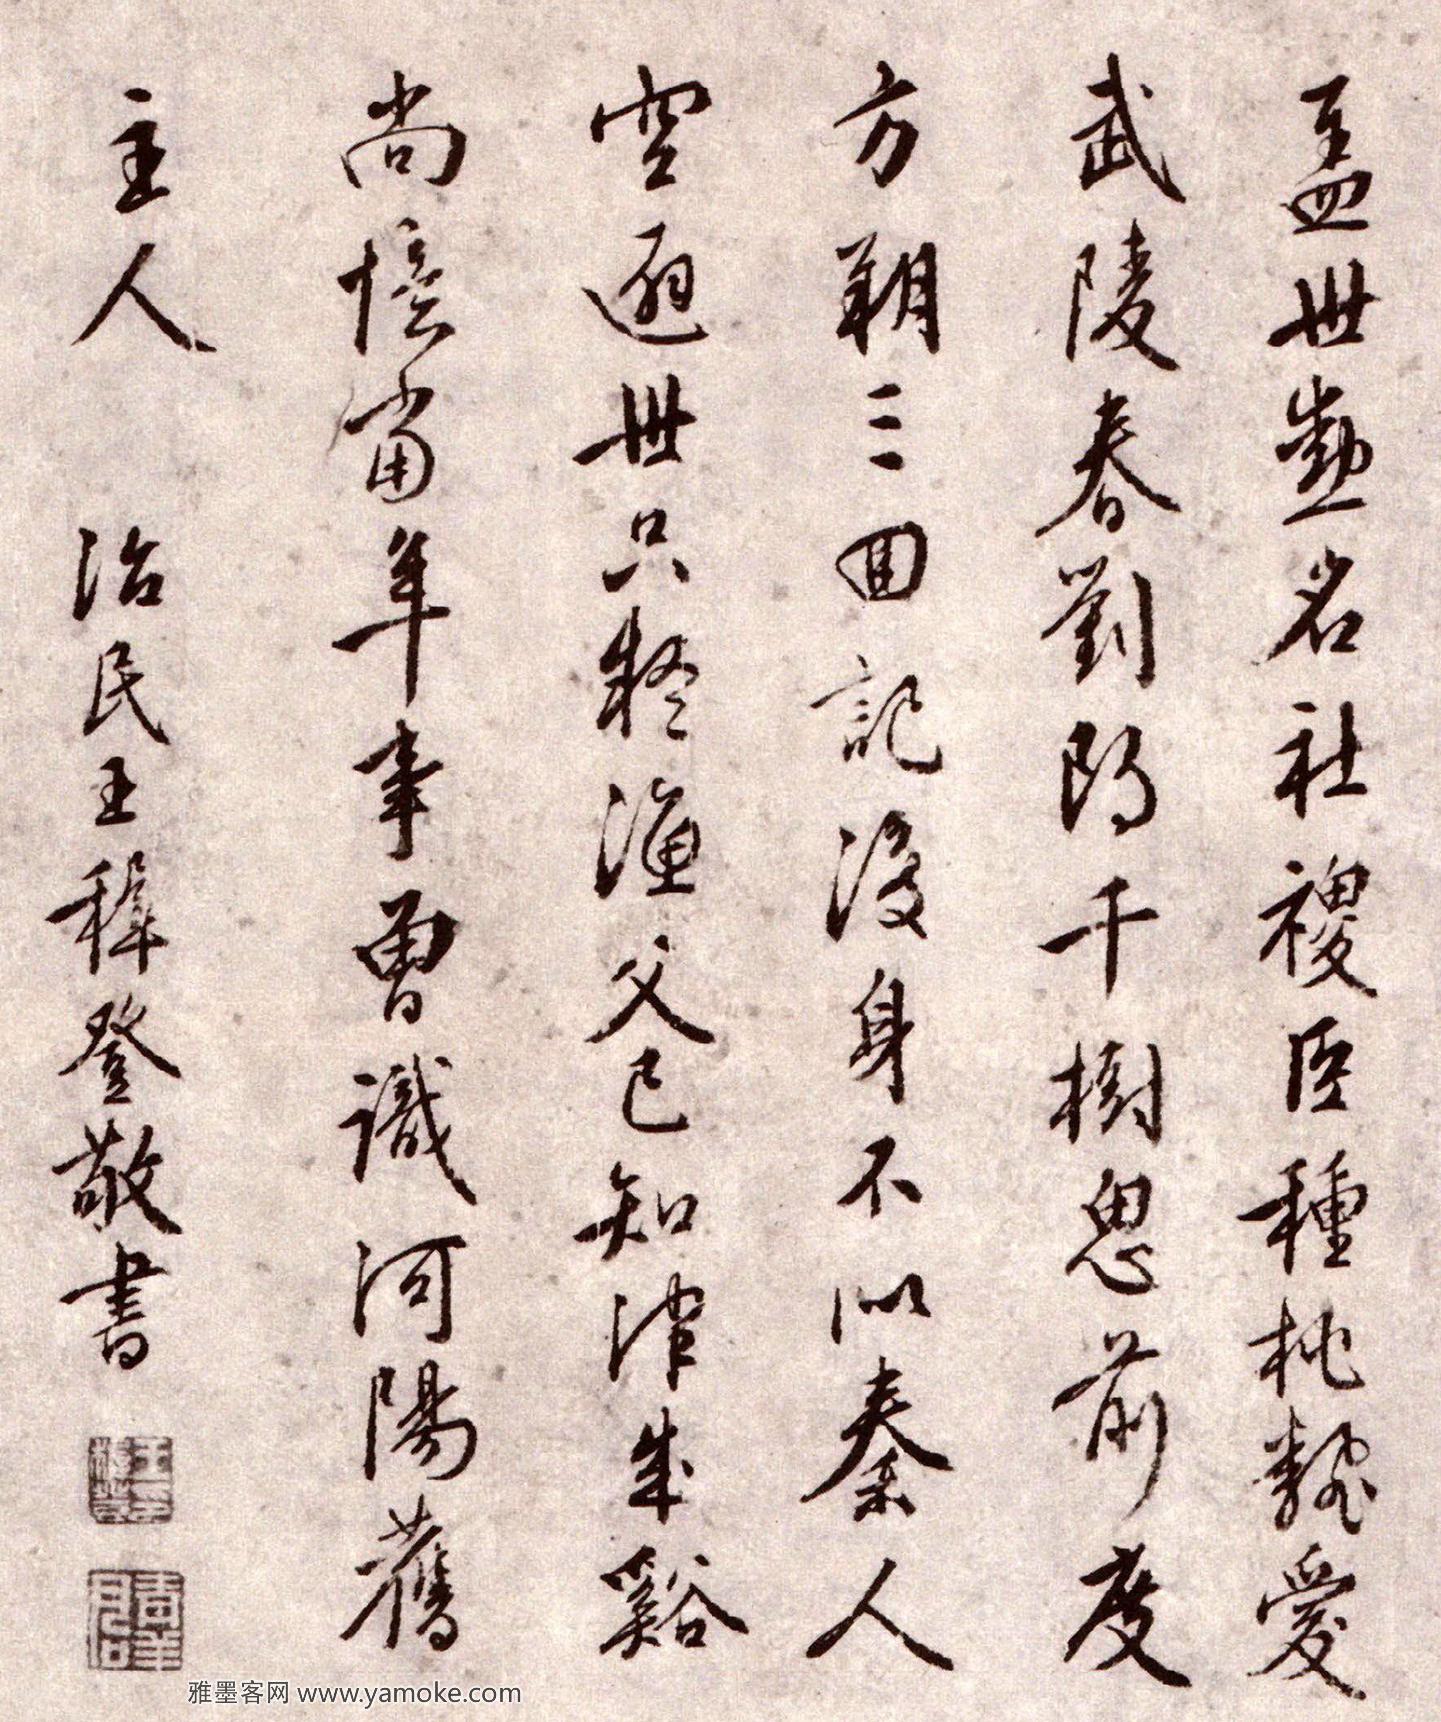 盖世勲名社稷臣種桃愛
武陵春劉郎千樹思前度
方朔三回記後身不似秦人
空避世只疑漁父已知津成谿
尚憶當年事曾識河陽舊
主人 治民王穉登敬書
雅墨客网 www.yamoke.com